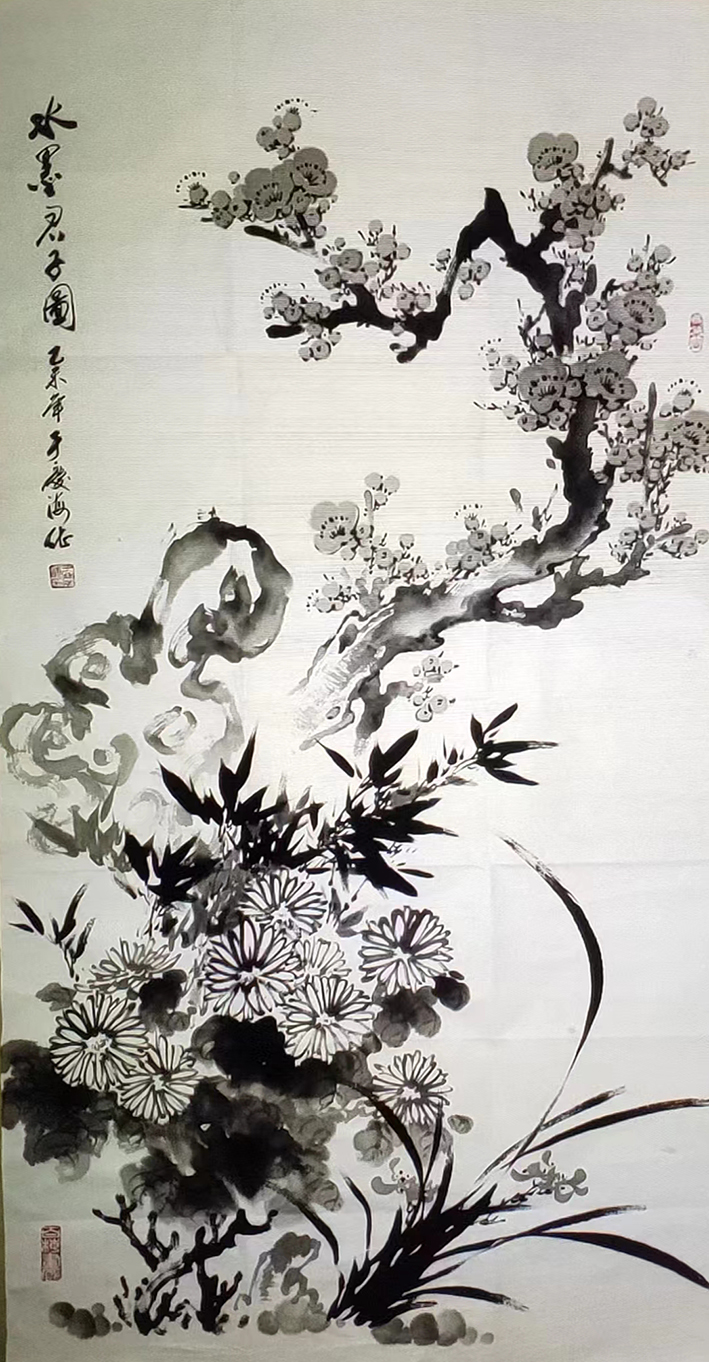 水墨君子圖
乙未年于慶海作